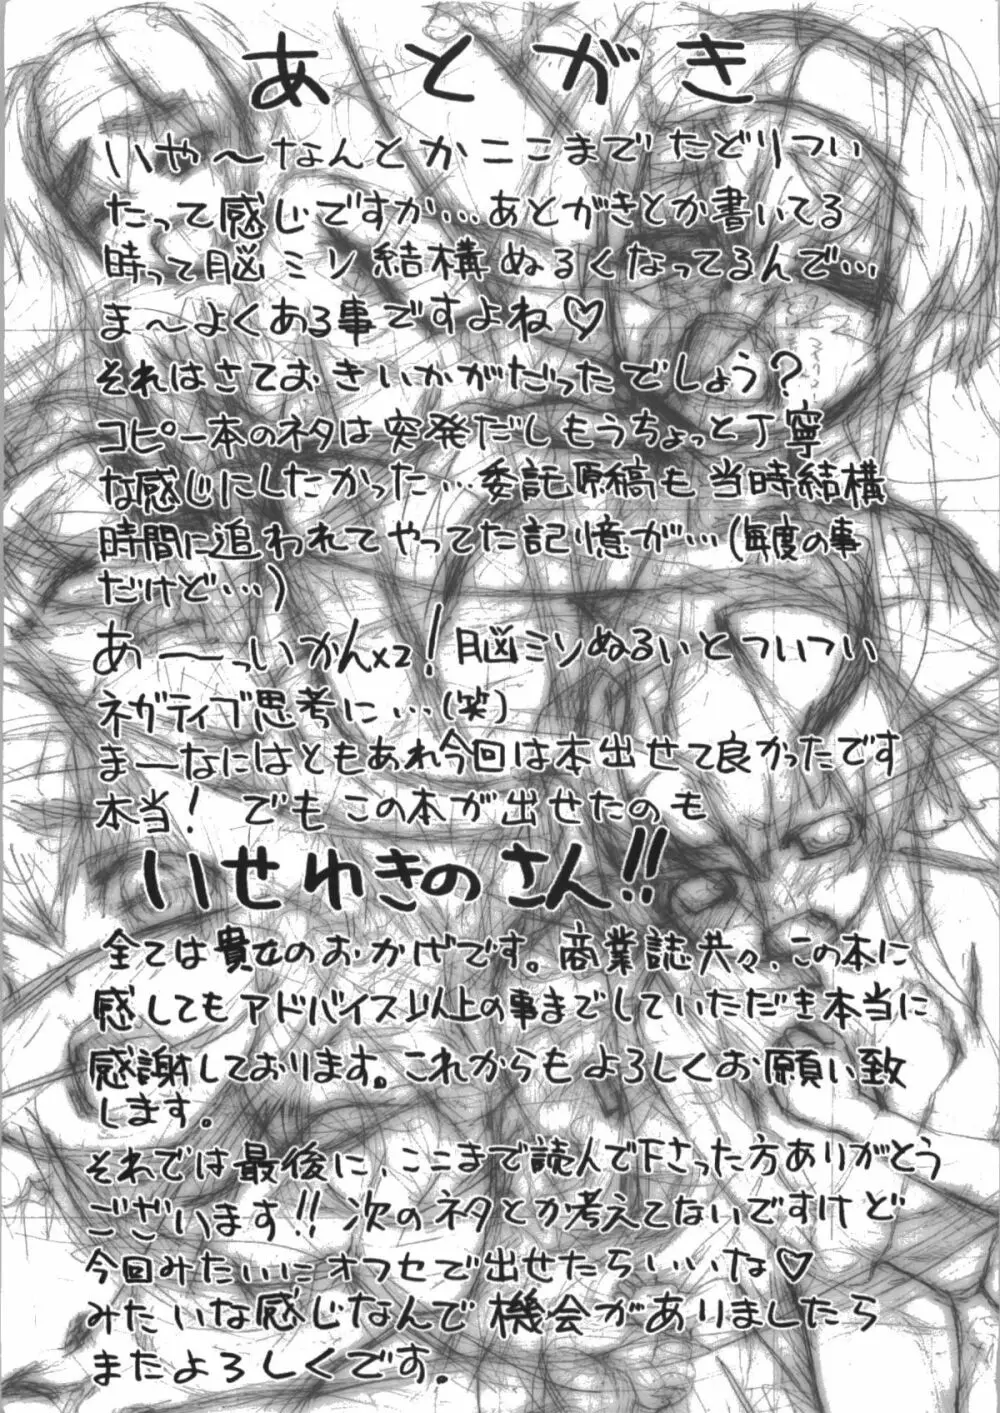 あとがき
いや～なんとかここまでたどりつい
たって感じですが…あとがきとか書いてる
時って脳ミソ結構ぬるくなってるんで…
ま～よくある事ですよね♡
それはさておきいかがだったでしょう?
コピー本のネタは突発だしもうちょっと丁寧
な感じにしたかった…委託原稿も当時結構
時間に追われてやってた記憶が…(毎度の事
だけど…)
あーっいかんx2!脳ミソぬるいとついつい
ネガティブ思考に…(笑)
まーなにはともあれ今回は本出せて良かったです
本当! でもこの本が出せたのも
いせゆきのさん!!
全ては貴女のおかげです。商業誌共々、この本に
感してもアドバイス以上の事までしていただき本当に
感謝しております。これからもよろしくお願い致
します。
それでは最後に、ここまで読んで下さった方ありがとう
ございます!!次のネタとか考えてないですけど
今回みたいにオフセで出せたらいいな♡
みたいな感じなんで機会がありましたら
またよろしくです。